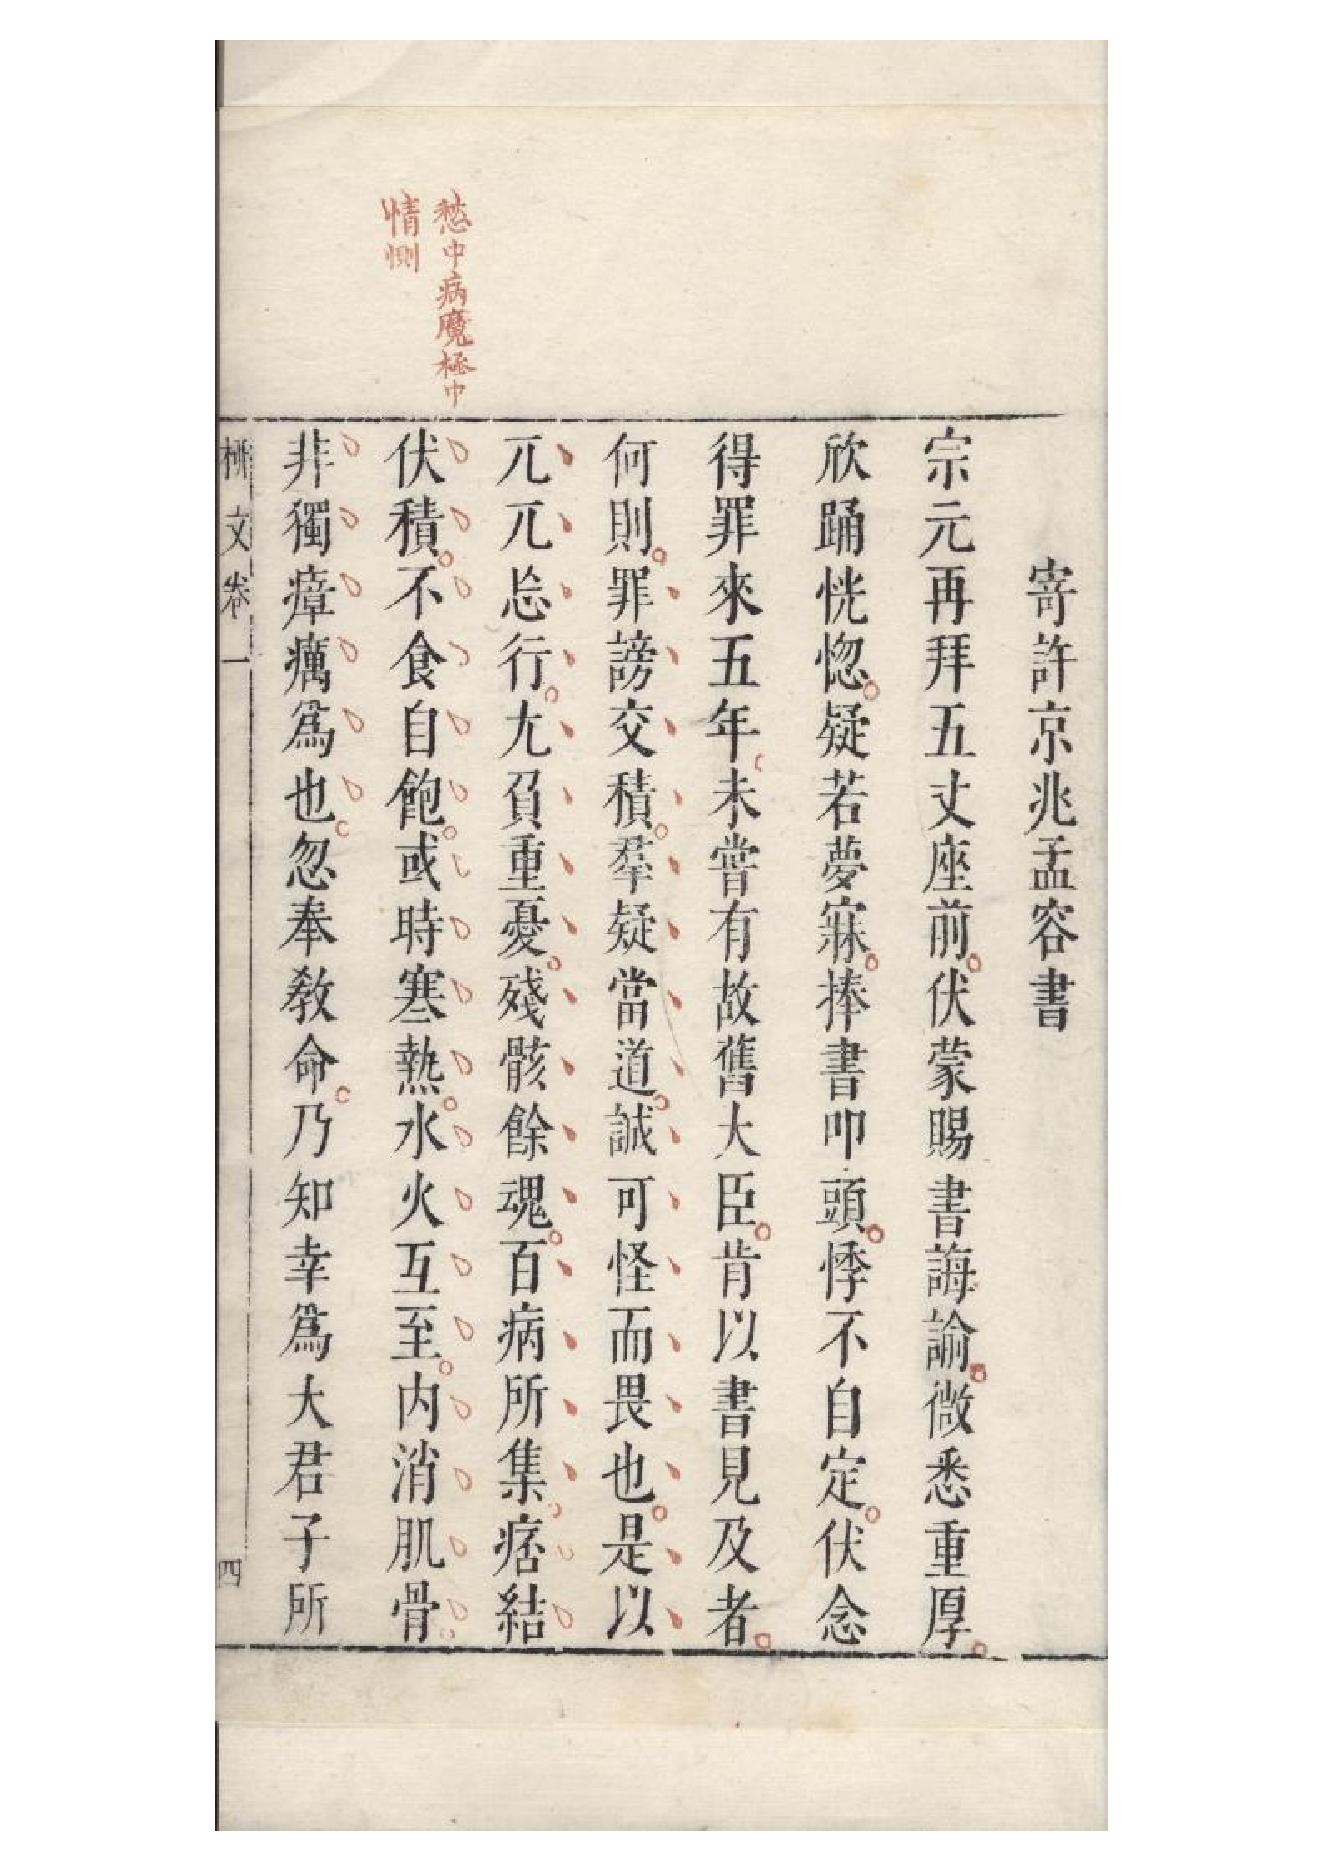 寄許京兆孟容書
宗元再拜五丈座前。伏蒙賜書誨諭。微悉重厚。
欣踊恍惚。疑若夢寐。捧書叩頭。悸不自定。伏念
得罪來五年。未嘗有故舊大臣。肯以書見及者。
何則。罪謗交積。羣疑當道。誠可怪而畏也。是以
兀兀忘行。尤負重憂。殘骸餘魂。百病所集。痞結
伏積。不食自飽。或時寒熱。水火互至。内消肌骨。
非獨瘴癘爲也。忽奉教命。乃知幸爲大君子所
愁中病魔極中
情惻
柳文卷一
四